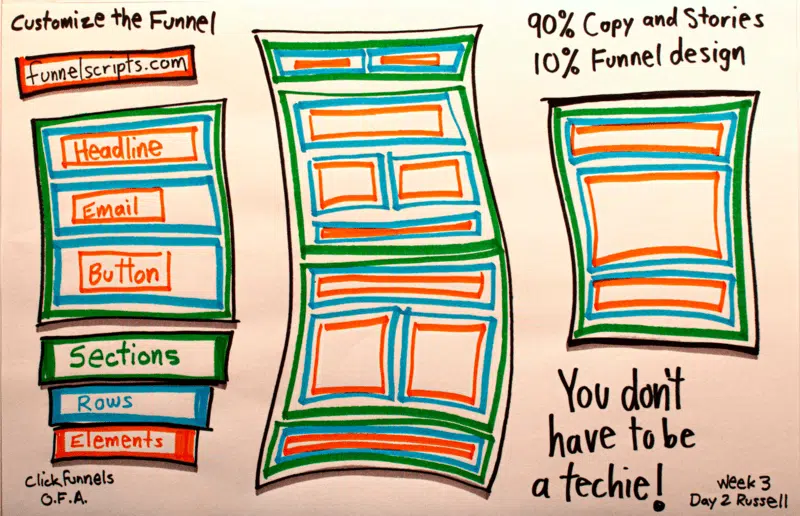 Customize the Funnel
funnelscripts.com
Headline
Email
Button
Sections
Rows
Elements
Click funnels
O.F.A.
90% Copy and Stories
10% Funnel design
You don't
have to be
a techie!
Week 3
Day 2 Russell